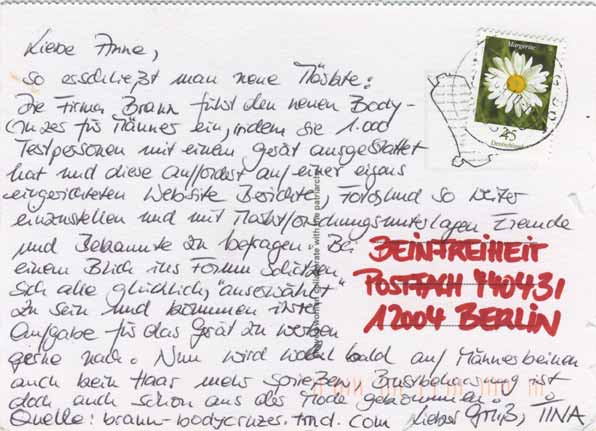 Liebe Anne,
so erschließt man neue Märkte:
Die Firma Braun führt den neuen Body-
cruzer für Männer ein, indem sie 1.000
Testpersonen mit einem Gerät ausgestattet
hat und diese auffordert auf einer eigens
eingerichteten Website Berichte, Fotos und so weiter
einzustellen und mit Marktforschungsunterlagen Freunde
und Bekannte zu befragen. Bei
einem Blick ins Forum schätzen
sich alle glücklich, "auserwählt"
zu sein und kommen ihrer
Aufgabe für das Gerät zu werben
gerne nach. Nun wird wohl bald auf Männerbeinen
auch kein Haar mehr sprießen. Brustbehaarung ist
doch auch schon aus der Mode gekommen.
Quelle: braun-bodycruzer.trnd.com Lieber Gruß, TINA
BEINFREIHEIT
POSTFACH 440431
12004 BERLIN
Margerite
45
Deutschland
collaborate with the patriarchy